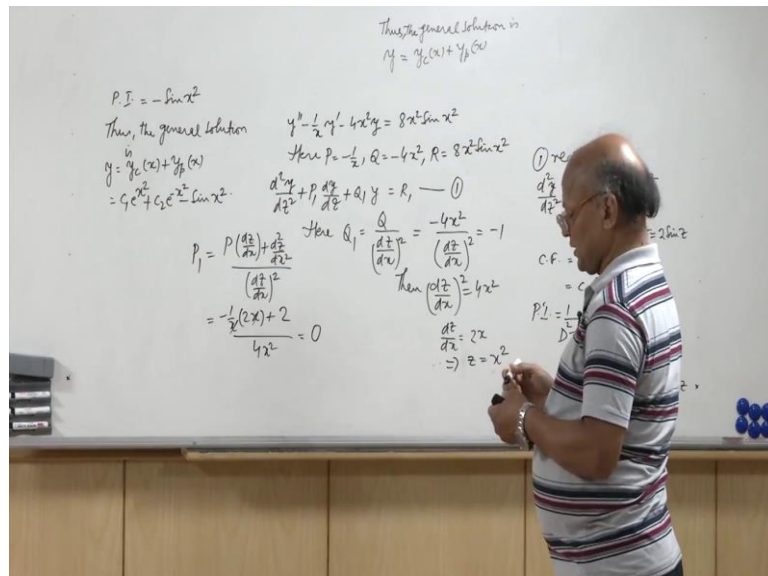 Thus, the general solution is
y = y_c(x) + y_p(x)
P.I. = -Sin x²
Thus, the general solution
is
y = y_c(x) + y_p(x)
= c₁e^{x²} + c₂e^{-x²} - Sin x².
y'' - 1/x y' - 4x²y = 8x² Sin x²
Here P = -1/x, Q = -4x², R = 8x² Sin x²
d²y/dz² + P₁ dy/dz + Q₁ y = R₁ — ①
Here Q₁ = Q/(dz/dx)² = -4x²/(dz/dx)² = -1
Then (dz/dx)² = 4x²
dz/dx = 2x
⇒ z = x²
P₁ = (P(dz/dx) + d²z/dx²)/(dz/dx)²
= (-1/x (2x) + 2)/4x² = 0
①
d²y/dz²
= 2 Sin z
C.F. =
= c
P.I. = 1/
z